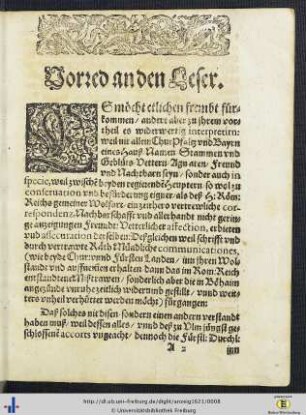 Vorred an den Leser.
ES möcht etlichen frembt für-
kommen / andere aber zu ihrem vor-
theil es widerwertig interpretirn:
weil nit allein Chur Pfaltz vnd Bayrn
eines Hauß Namen Stammen vnd
Geblüts Vettern Agnaten / Freund
vnd Nachbarn seyn / sonder auch in
specie, weil zwische beyden regierende Heuptern so wol zu
conseruation vnd befürderung eigner als deß H: Röm:
Reichs gemeiner Wolfart. ein zeithero vertrewliche cor-
respondenz Nachbarschafft vnd allerhandt nicht gerin-
ge anzeigungen Freundt: Vetterlicher affection, erbieten
vnd assecuration derselben: Deßgleichen weil schrifft vnd
durch vertrawte Räth Mündliche communicationes,
(wie beyde Chur: vnd Fürsten Landen / inn ihrem Wol-
standt vnd auffnemen erhalten dann das im Rom: Reich
entstandene Mißtrawen / sonderlich aber die in Böhaim
angezündte vnruhe zeitlich widerumb gestillt / vnd weit-
ters vnheil verhüttet werden möcht) fürgangen:
Daß solches nit disen sonder einen andern verstandt
haben muß / weil dessen alles / vnd deß zu Vlm jüngst ge-
schlossene accorts vngeacht / dennoch die Fürstl: Durchl:
A 2
inn
http://dl.ub.uni-freiburg.de/diglit/anzeig1621/0008
© Universitätsbibliothek Freiburg